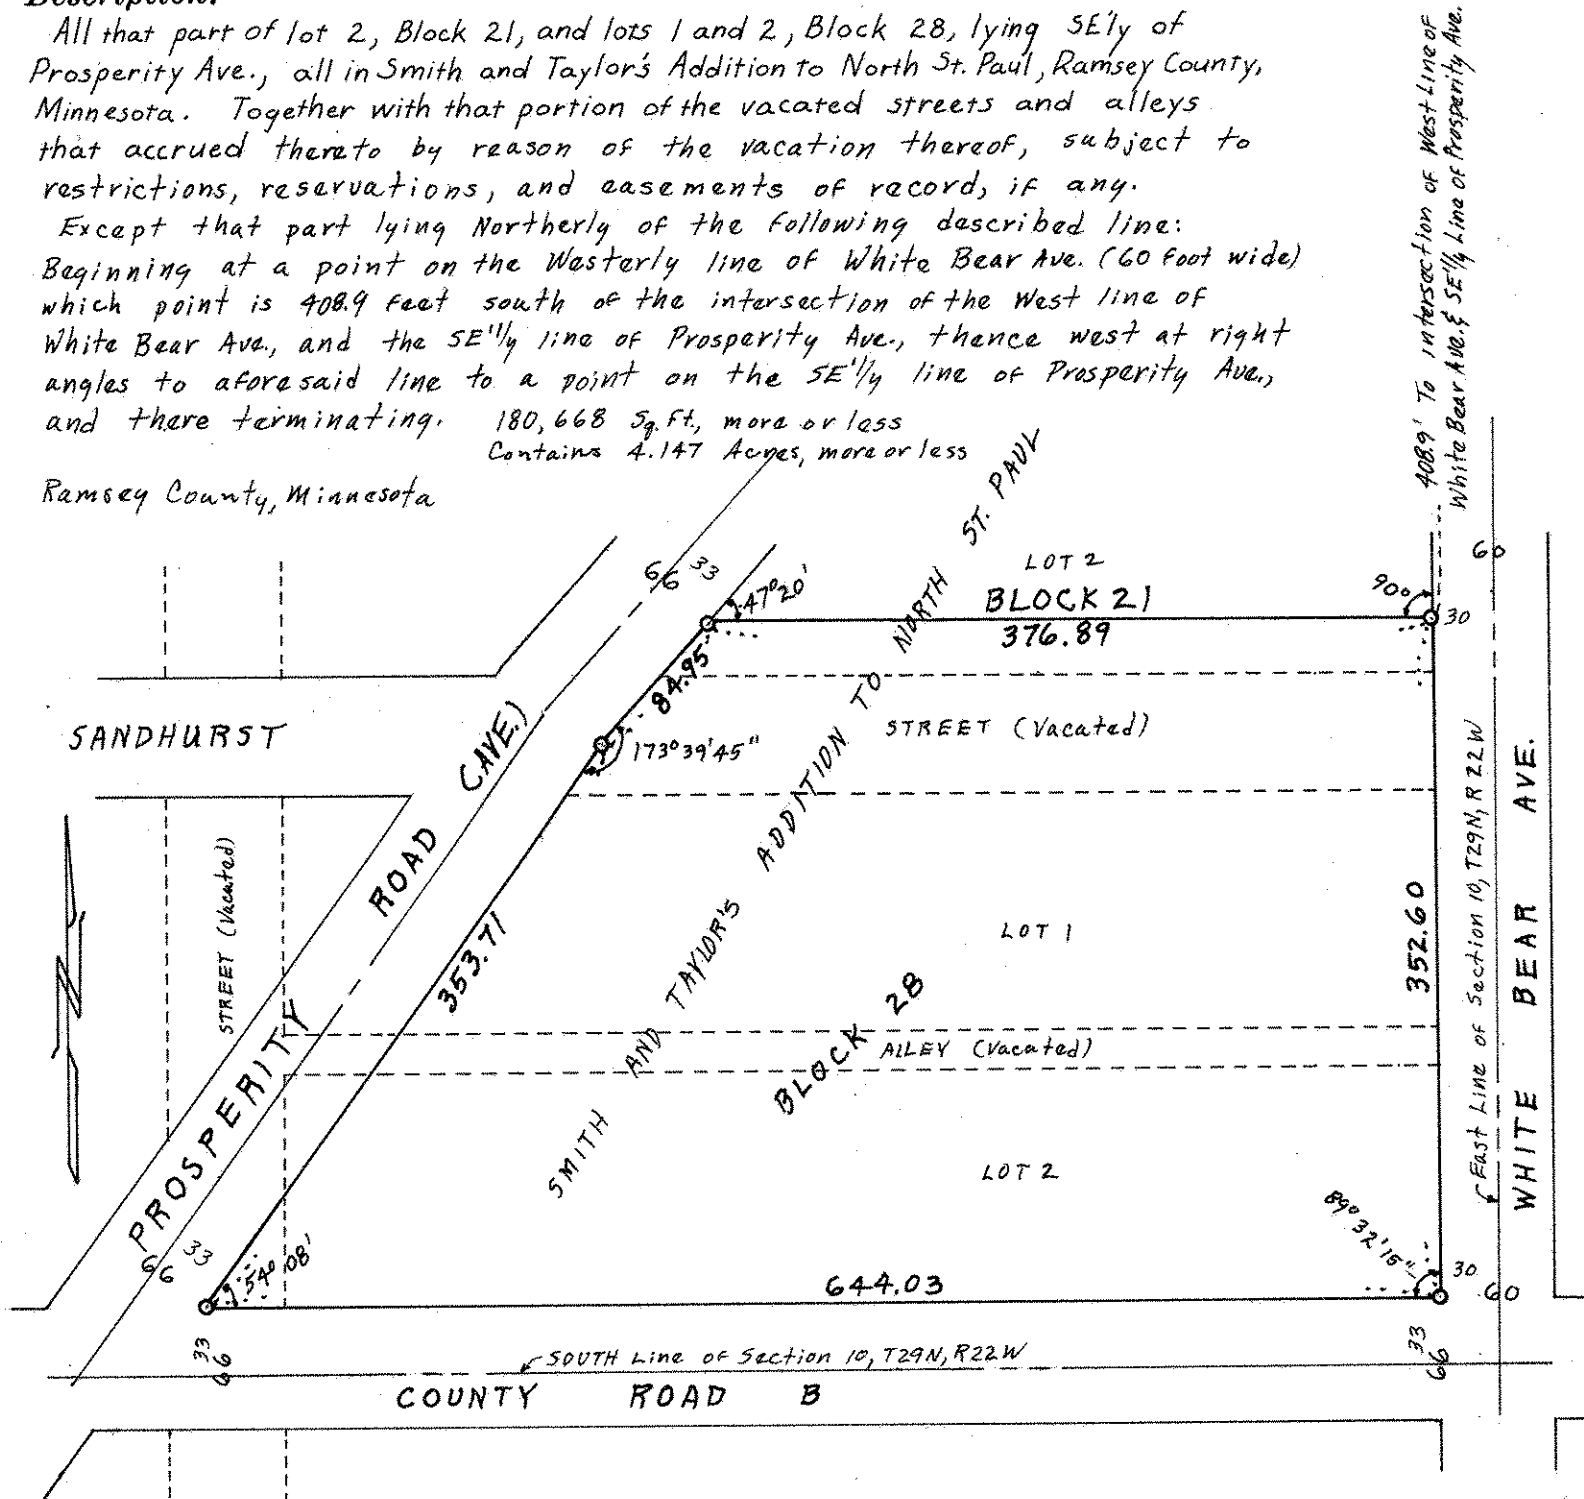 Description:
All that part of lot 2, Block 21, and lots 1 and 2, Block 28, lying SE'ly of
Prosperity Ave., all in Smith and Taylor's Addition to North St. Paul, Ramsey County,
Minnesota. Together with that portion of the vacated streets and alleys
that accrued thereto by reason of the vacation thereof, subject to
restrictions, reservations, and easements of record, if any.
Except that part lying Northerly of the following described line:
Beginning at a point on the Westerly line of White Bear Ave. (60 foot wide)
which point is 408.9 feet south of the intersection of the West line of
White Bear Ave., and the SE'lly line of Prosperity Ave., thence west at right
angles to aforesaid line to a point on the SE'lly line of Prosperity Ave.,
and there terminating. 180,668 Sq. Ft., more or less
Contains 4.147 Acres, more or less
Ramsey County, Minnesota
408.9' To intersection of West Line of
White Bear Ave. & SE'lly Line of Prosperity Ave.
66
33
47°20'
LOT 2
BLOCK 21
376.89
90°
60
30
84.95'
173°39'45"
SANDHURST
STREET (Vacated)
STREET (Vacated)
PROSPERITY ROAD (AVE.)
353.71
SMITH AND TAYLOR'S ADDITION TO NORTH ST. PAUL
LOT 1
BLOCK 28
ALLEY (Vacated)
LOT 2
352.60
East Line of Section 10, T29N, R22W
WHITE BEAR AVE.
N
66
33
54° 08'
644.03
89°32'15"
30
60
33
66
SOUTH Line of Section 10, T29N, R22W
33
66
COUNTY ROAD B